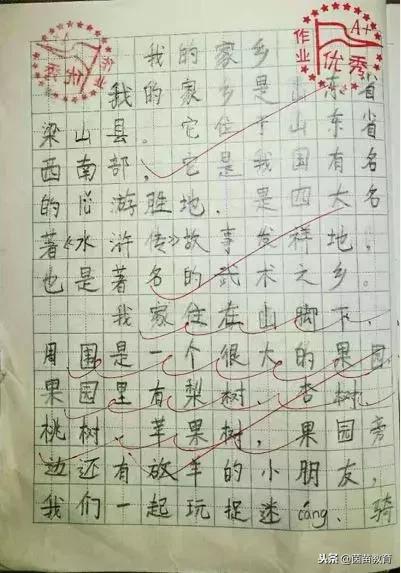 作业
优秀
A+
优秀
作业
我的家乡
我的家乡是山东省
梁山县。它位于山东省
西南部，它是我国有名
的旅游胜地，是四大名
著《水浒传》故事发祥地，
也是著名的武术之乡。
我家住在山脚下，
周围是一个很大的果园，
果园里有梨树、杏树、
桃树、苹果树，果园旁
边还有放羊的小朋友，
我们一起玩捉迷cáng、骑
头条 @茵苗教育